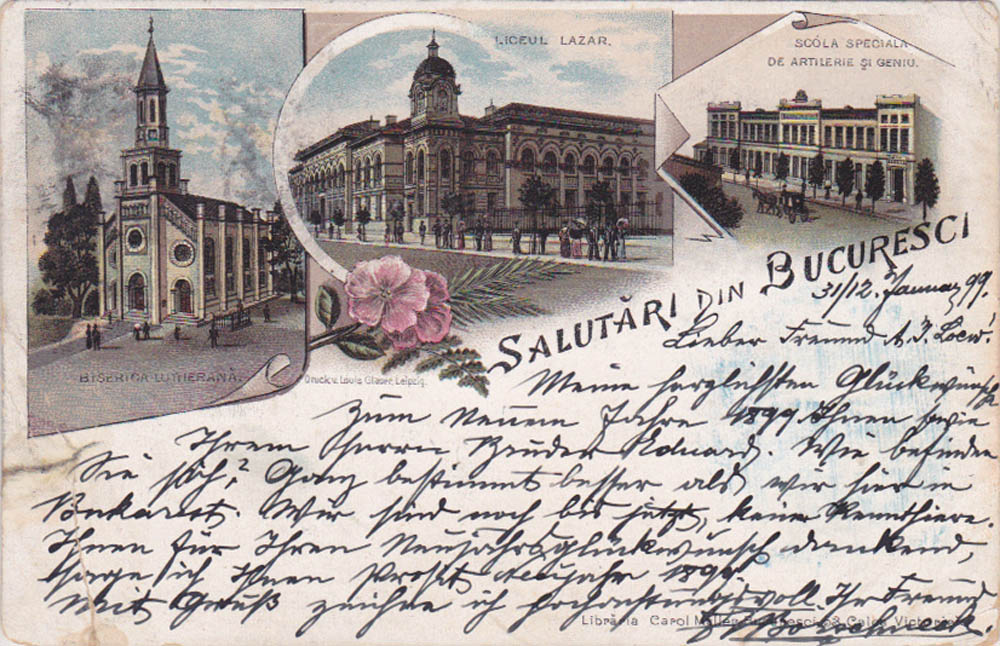 LICEUL LAZAR.
SCÓLA SPECIALA
DE ARTILERIE ȘI GENIU.
BISERICA LUTHERANĂ.
Druck v. Louis Glaser, Leipzig.
SALUTĂRI DIN BUCURESCI
31/12. Januar 99.
Lieber Freund A. J. Loew.
Meine herzlichsten Glückwünsche
Zum Neuem Jahre 1899 Ihnen sowie
Ihrem Herrn Bruder Eduard. Wie befinden
Sie sich? Ganz bestimmt besser als wir hier in
Bukarest. Wir sind noch bis jetzt, keine
Ihnen für Ihren Neujahrsglückwünsch dankend,
sage ich Ihnen Prosit Neujahr 1899.
Mit Gruß zeichne ich hochachtungsvoll Ihr Freund
Librăria Carol Müller Bucuresci 53, Calea Victoriei